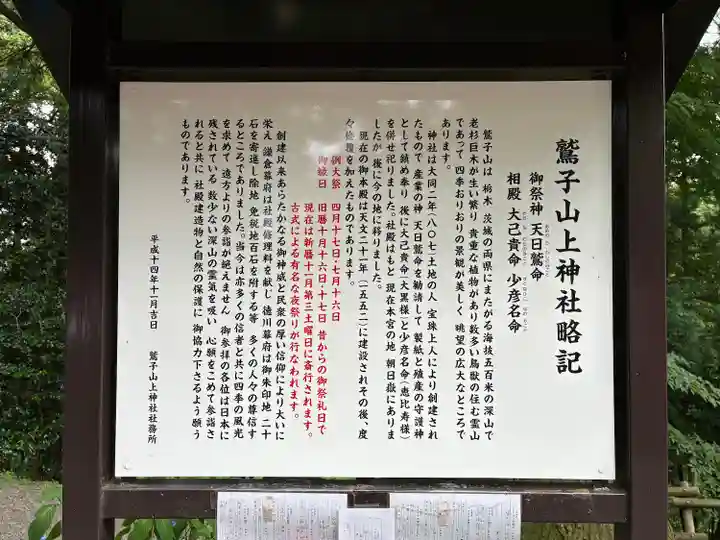 鷲子山上神社略記
御祭神 天日鷲命
相殿 大己貴命 少彦名命
鷲子山は 栃木 茨城の両県にまたがる海抜五百米の深山で
老杉巨木が生い繁り 貴重な植物があり数多い鳥獣の住む霊山
であって 四季おりおりの景観が美しく 眺望の広大なところで
あります。
神社は大同二年(八〇七)土地の人 宝珠上人により創建され
たもので 産業の神 天日鷲命を勧請して 製紙と殖産の守護神
として鎮め奉り 後に大己貴命(大黒様)と少彦名命(恵比寿様)
を併せ祀りました。社殿はもと 現在本宮の地 朝日嶽にありま
したが 後に今の地に移りました。
現在の御本殿は天文二十一年(一五五二)に建設されその後、度
々修理を加えたものであります。
例大祭 四月十七日・七月十六日
御縁日 旧暦十月十六日・十七日 昔からの御祭礼日で
現在は新暦十一月第三土曜日に斎行されます。
古式による有名な夜祭りが行なわれます。
創建以来あらたかなる御神威と民衆の厚い信仰により大いに
栄え 鎌倉幕府は社殿修理料を献じ 徳川幕府は御朱印地 二十
石を寄進し除地 免租地百石を附する等 多くの人々の尊信す
るところでありました。当今は亦多くの信者と共に四季の風光
を求めて 遠方よりの参詣が絶えません 御参拝の各位は日本に
残されている 数少ない深山の霊気を吸い 心願をこめて参詣さ
れると共に 社殿建造物と自然の保護に 御協力下さるよう願う
ものであります。
平成十四年十一月吉日
鷲子山上神社社務所